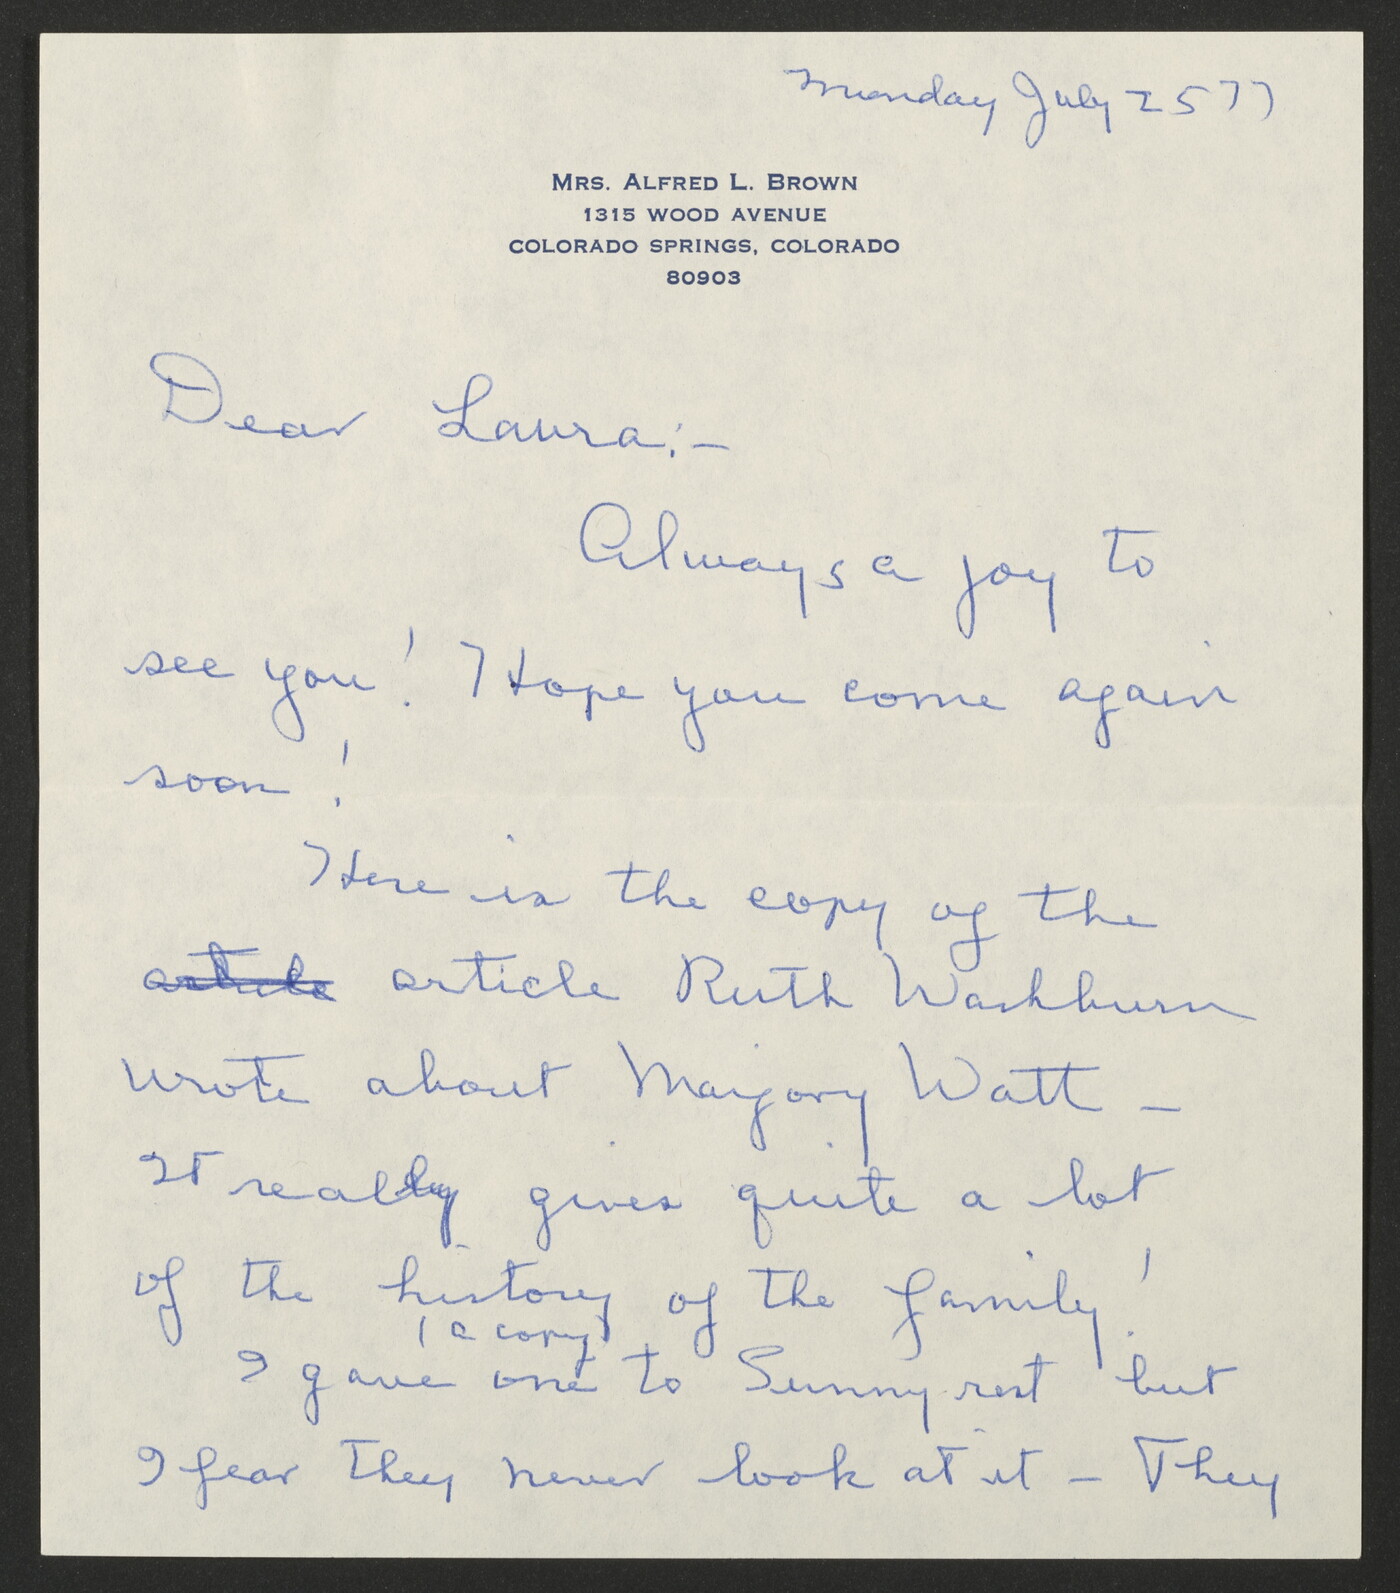 Monday July 25 77
MRS. ALFRED L. BROWN
1315 WOOD AVENUE
COLORADO SPRINGS, COLORADO
80903
Dear Laura:-
Always a joy to
see you! Hope you come again
soon!
Here is the copy of the
article article Ruth Washburn
wrote about Marjory Watt -
It really gives quite a lot
of the history of the family!
(a copy)
I gave one to Sunny rest but
I fear they never look at it - They